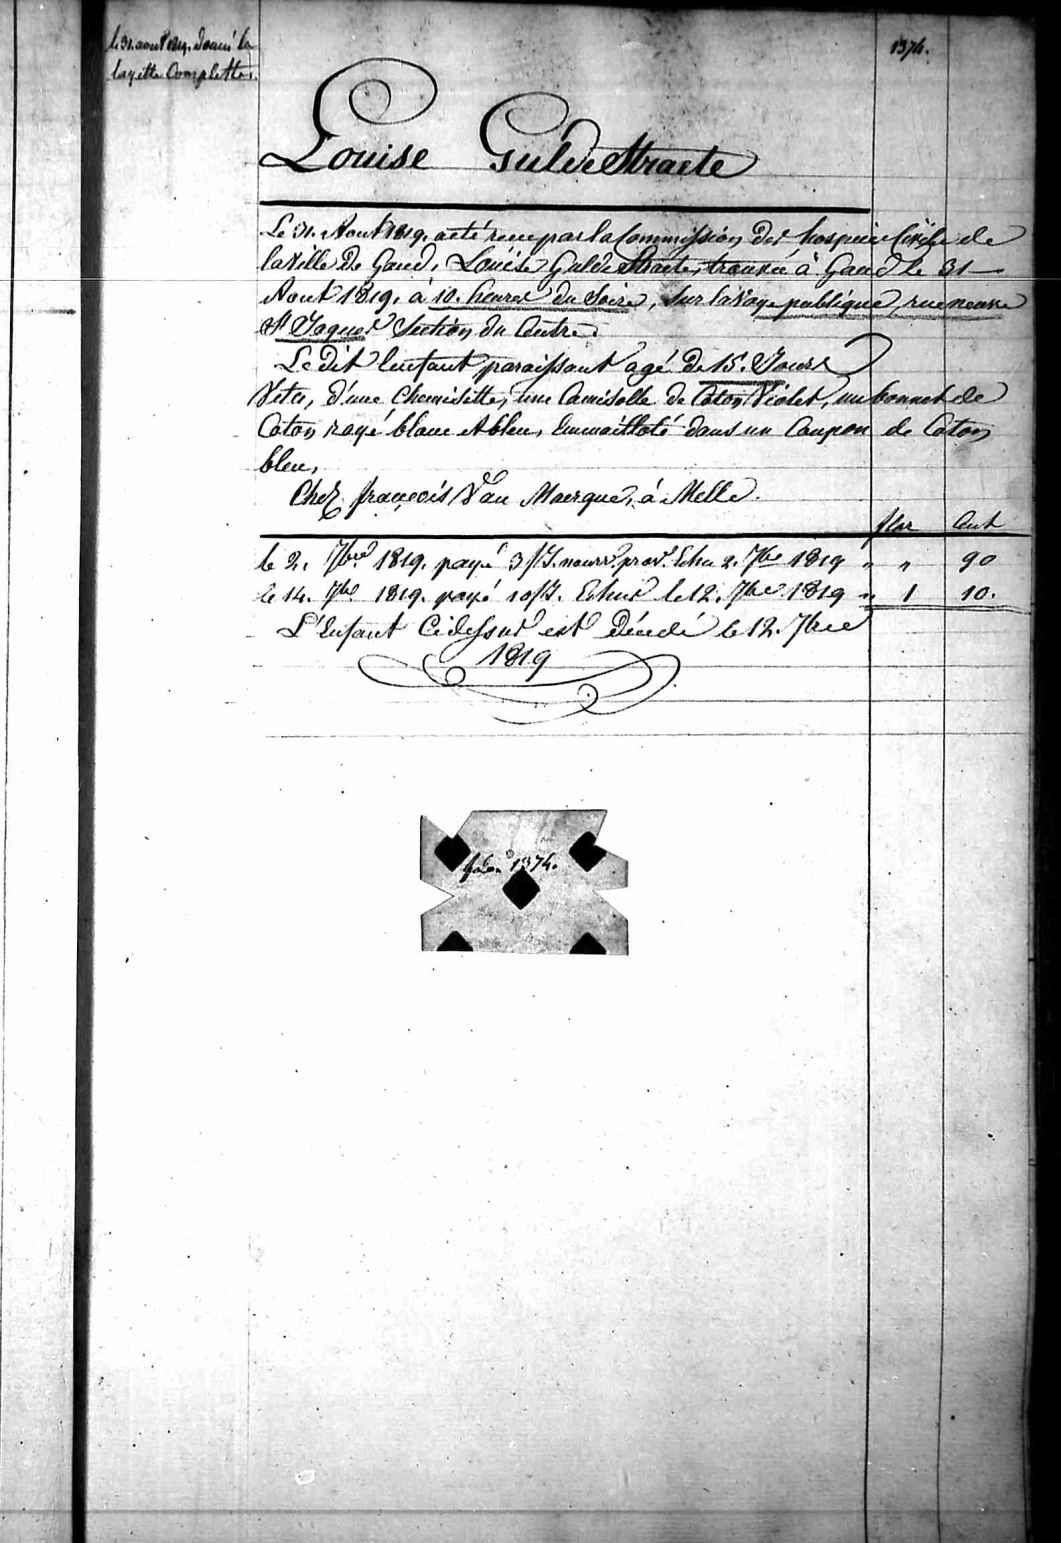 le 31. aout 1819. donné la
layette Complette.
1374.
Louise GuldeStraete
Le 31. Aout 1819. a eté recu par la Commission des hospices Civils de
la Ville de Gand, Louise GuldeStraete, trouvée à Gand le 31
Aout 1819. à 10. heures du Soire, Sur la Voye publique, rue neuve
St. Jaques Section du Centre.
Le dit Enfant paraissant agé de 15. Jours
Vetu, d'une Chemisette, une Camisolle de Coton Violet, un bonnet de
Coton rayé blanc et bleu, Emmailloté dans un Coupon de Coton
bleu,
Chez françois Van Maerque, à Melle.
flor Cent
le 2. 7bre 1819. payé 3/J. nourr. prov. Echu 2. 7bre 1819 " " 90
le 14. 7bre 1819. payé 10/J. Echus le 12. 7bre 1819 " 1 10.
L'Enfant Cidessus est Décédé le 12. 7bre
1819
1374.